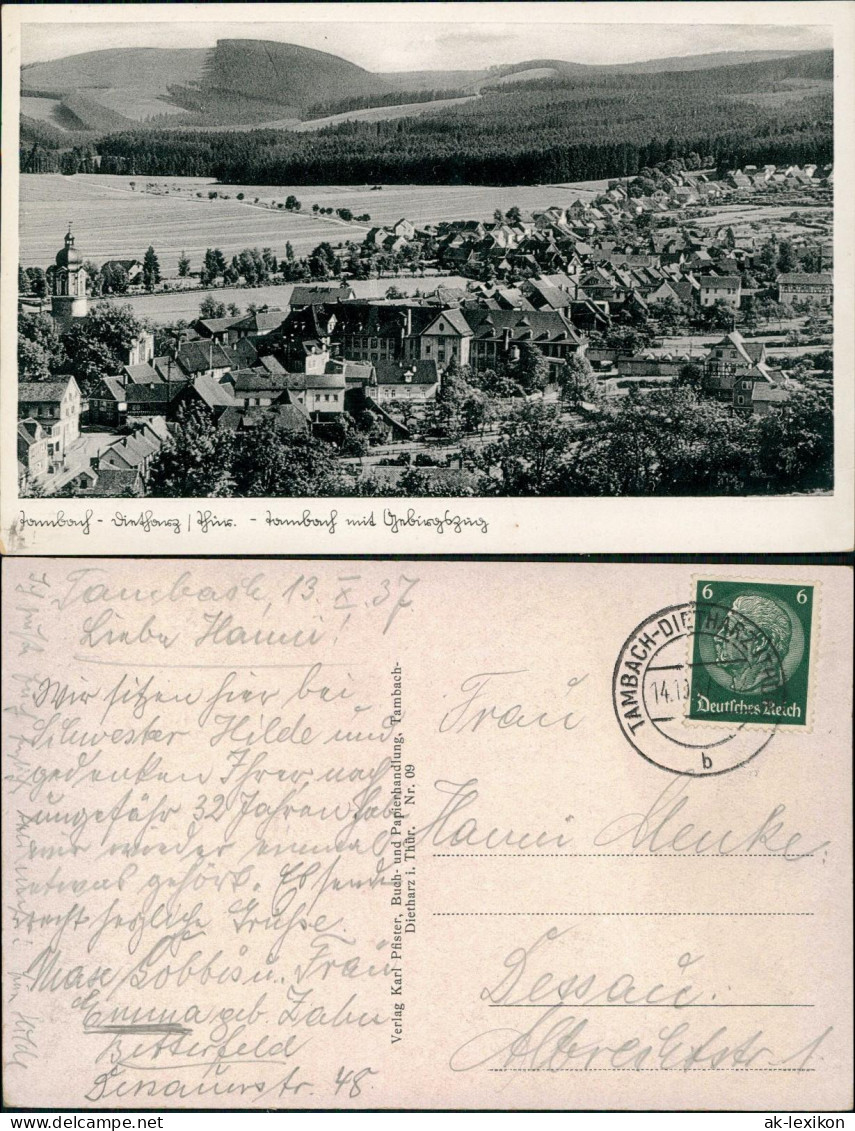 Tambach - Dietharz / Thür. - Tambach mit Gebirgszug
Tambach, 13. X. 37.
Liebe Hanni!
Wir sitzen hier bei
Schwester Hilde und
gedenken Ihrer nach
ungefähr 32 Jahren. Hab
wir wieder einmal
etwas gehört. Es senden
recht herzliche Grüße
Max u. Frau
Emma geb. Zahn
Bitterfeld
Dessauerstr. 48.
Verlag Karl Pfister, Buch- und Papierhandlung, Tambach-
Dietharz i. Thür. Nr. 09
6 6
Deutsches Reich
TAMBACH-DIETHARZ (TH
14.10
b
Frau
Hanni Menke
Dessau.
Albrechtstr. 1
ak-lexikon.com